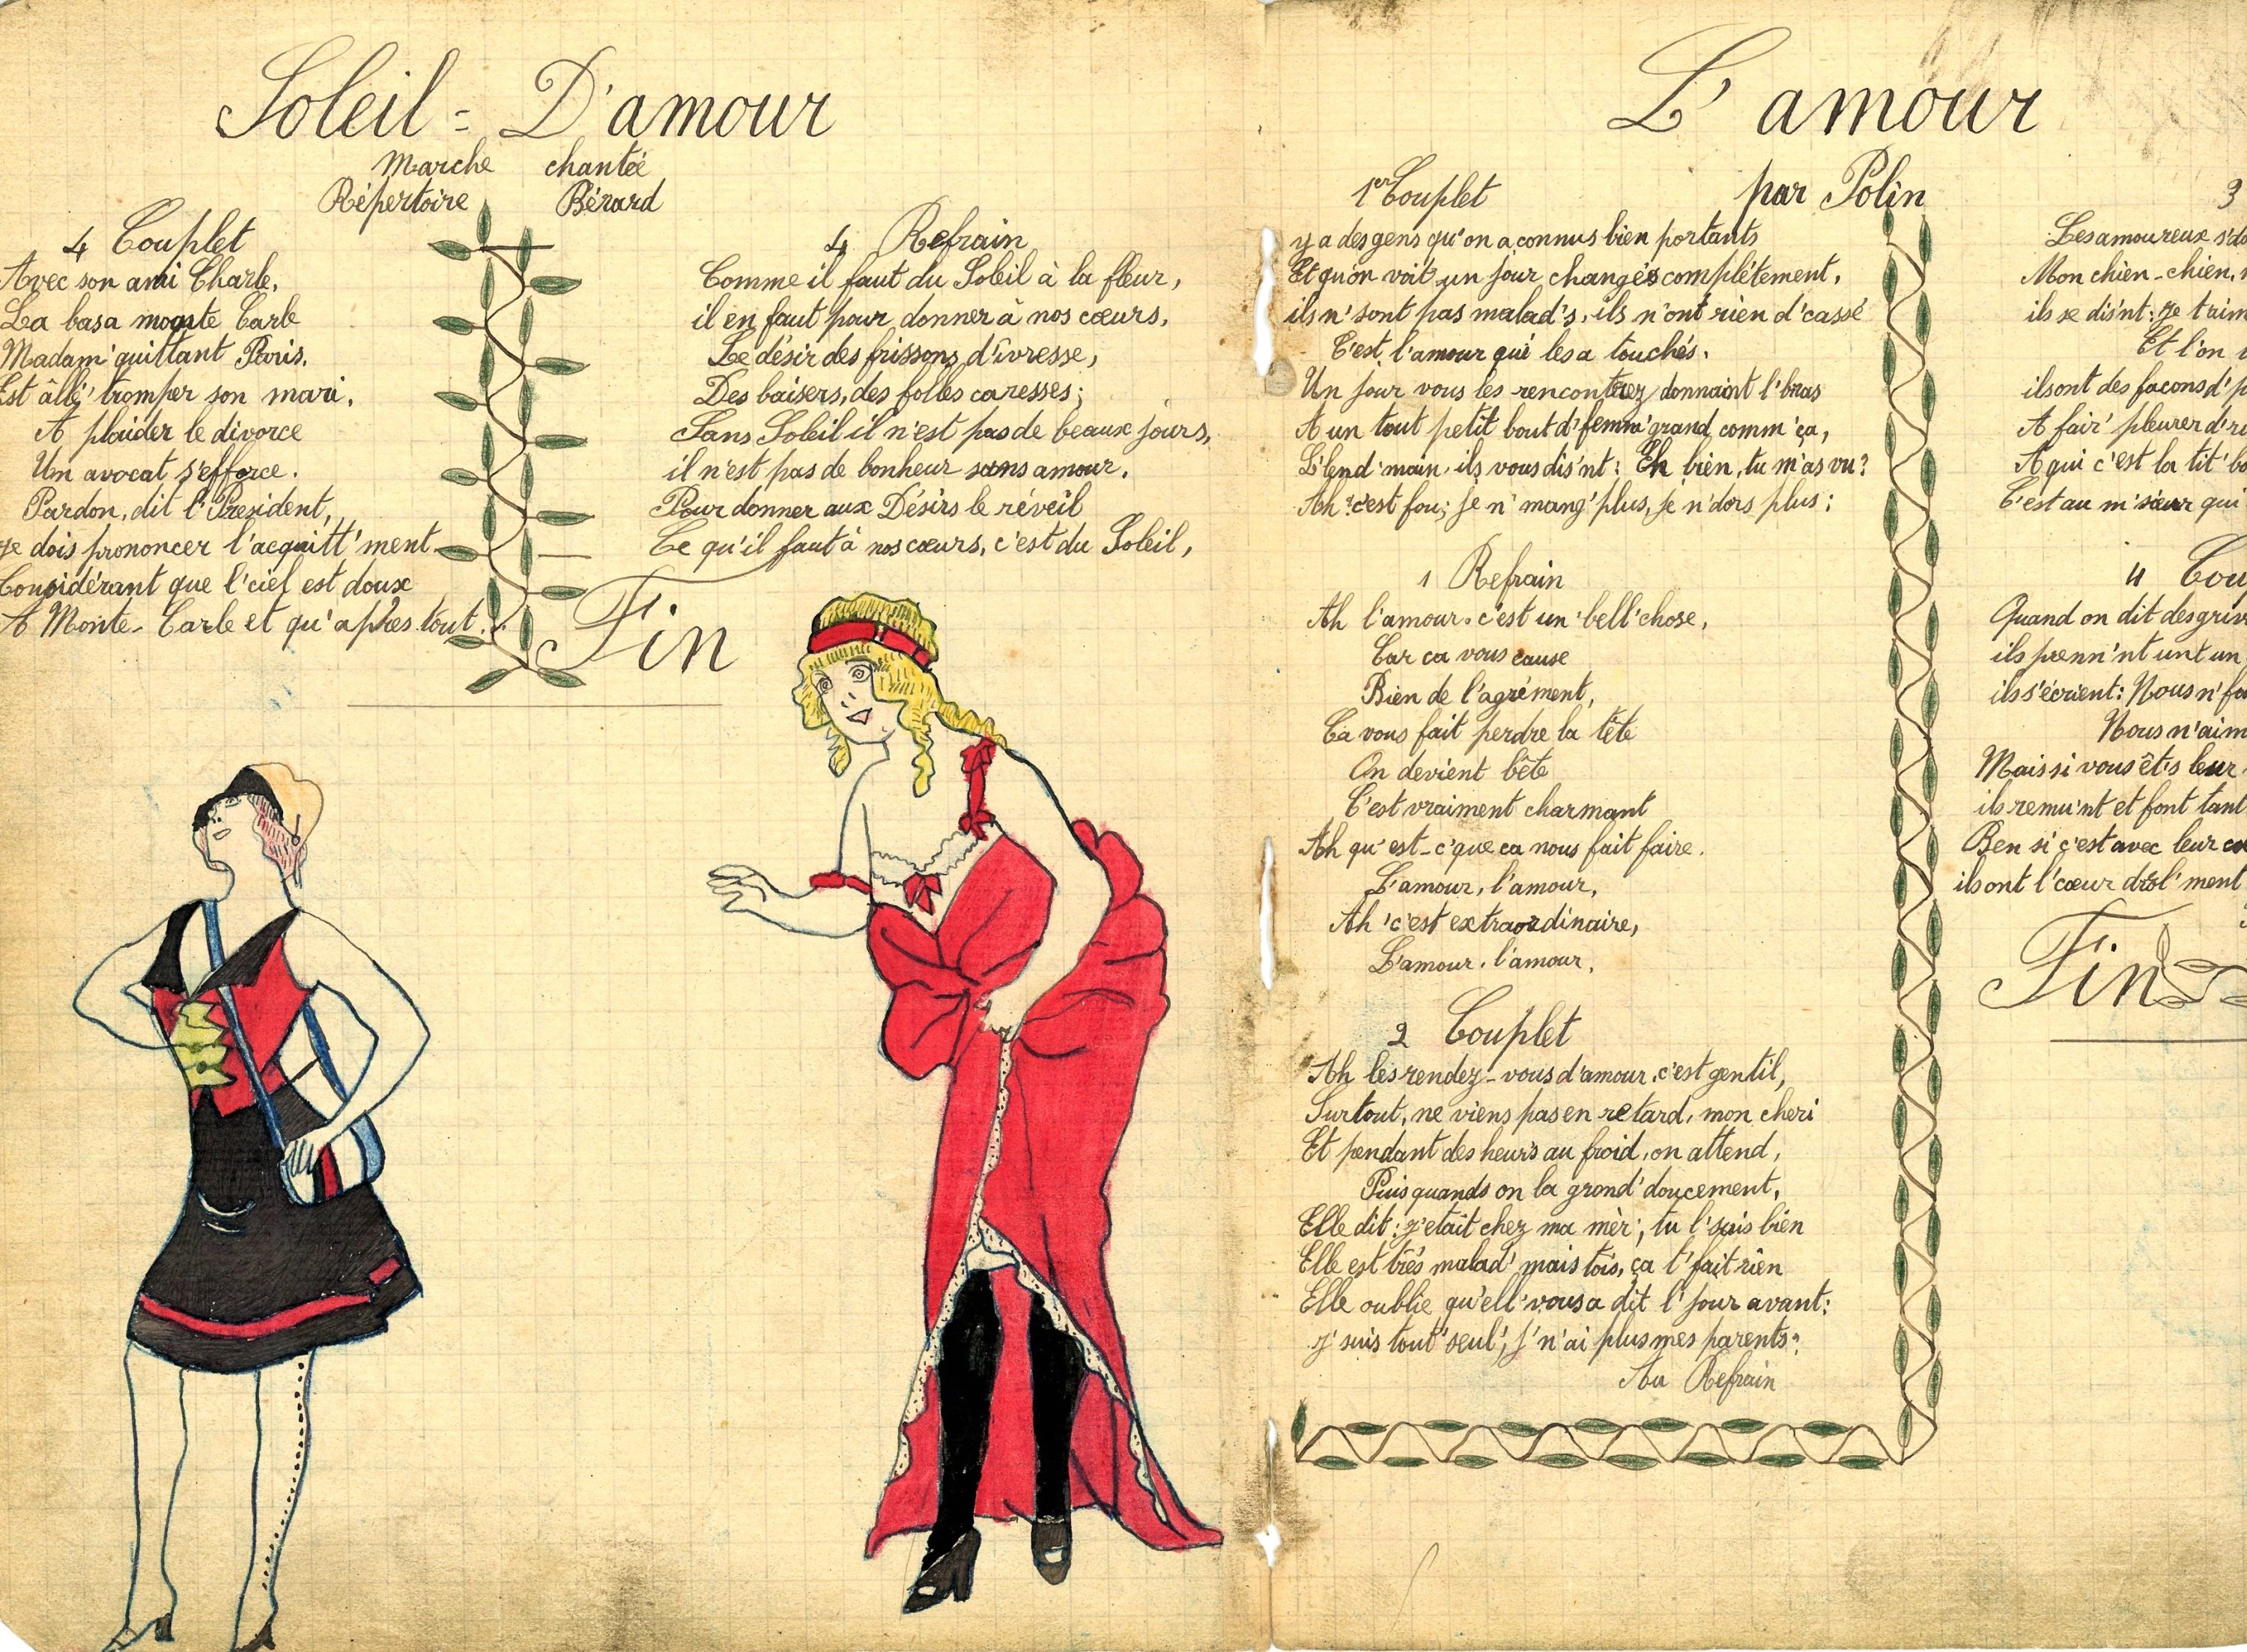 Soleil = D'amour
Marche chantée
Répertoire Bérard
4 Couplet
Avec son ami Charle,
La basa moqste Carle
Madam' quittant Paris,
Est âllé' tromper son mari,
A plaider le divorce
Um avocat s'efforce.
Pardon, dit l'President,
Je dois prononcer l'acquitt'ment
Considérant que l'ciel est doux
A Monte-Carle et qu'aphès tout.
4 Refrain
Comme il faut du Soleil à la fleur,
il en faut pour donner à nos cœurs,
Le désir des frissons d'ivresse,
Des baisers, des folles caresses;
Sans Soleil il n'est pas de beaux jours,
il n'est pas de bonheur sans amour.
Pour donner aux Désirs le réveil
Ce qu'il faut à nos cœurs, c'est du Soleil,
Fin
L'amour
par Polin
1er Couplet
y a des gens qu'on a connus bien portants
Et qu'on voit un jour changés complètement,
ils n'sont pas malad's, ils n'ont rien d'cassé
C'est l'amour qui les a touchés.
Un jour vous les rencontrez donnaint l'bras
A un tout petit bout d'femm' grand comm' ça,
L'lend'main, ils vous dis'nt: Eh bien, tu m'as vu?
Ah! c'est fou; je n'mang' plus, je n'dors plus:
1 Refrain
Ah l'amour. c'est un' bell' chose,
Car ca vous cause
Bien de l'agrément,
Ca vous fait perdre la tête
On devient bête
C'est vraiment charmant
Ah qu'est-c'que ca nous fait faire.
L'amour, l'amour,
Ah! c'est extraordinaire,
L'amour. l'amour.
2 Couplet
Ah les rendez-vous d'amour, c'est gentil,
Surtout, ne viens pas en retard, mon cheri
Et pendant des heur's au froid, on attend,
Puis quands on la grond' doucement,
Elle dit: j'etait chez ma mèr', tu l'sais bien
Elle est très malad' mais tois, ça t'fait rien
Elle oublie qu'ell' vous a dit l'jour avant:
j'suis tout' seul', j'n'ai plus mes parents:
Au Refrain
3
Les amoureux s'do
Mon chien-chien,
ils se dis'nt: Je t'aim
Et l'on
ils ont des façons d'p
A fair' pleurer d'ri
A qui c'est la tit' bo
C'est au m'sieur qui
4 Cou
Quand on dit des griv
ils prenn'nt un
ils s'écrient: Nous n'fa
Nous n'aim
Mais si vous êt's leur
ils remu'nt et font tant
Ben si c'est avec leur cœ
ils ont l'cœur drol'ment
Fin